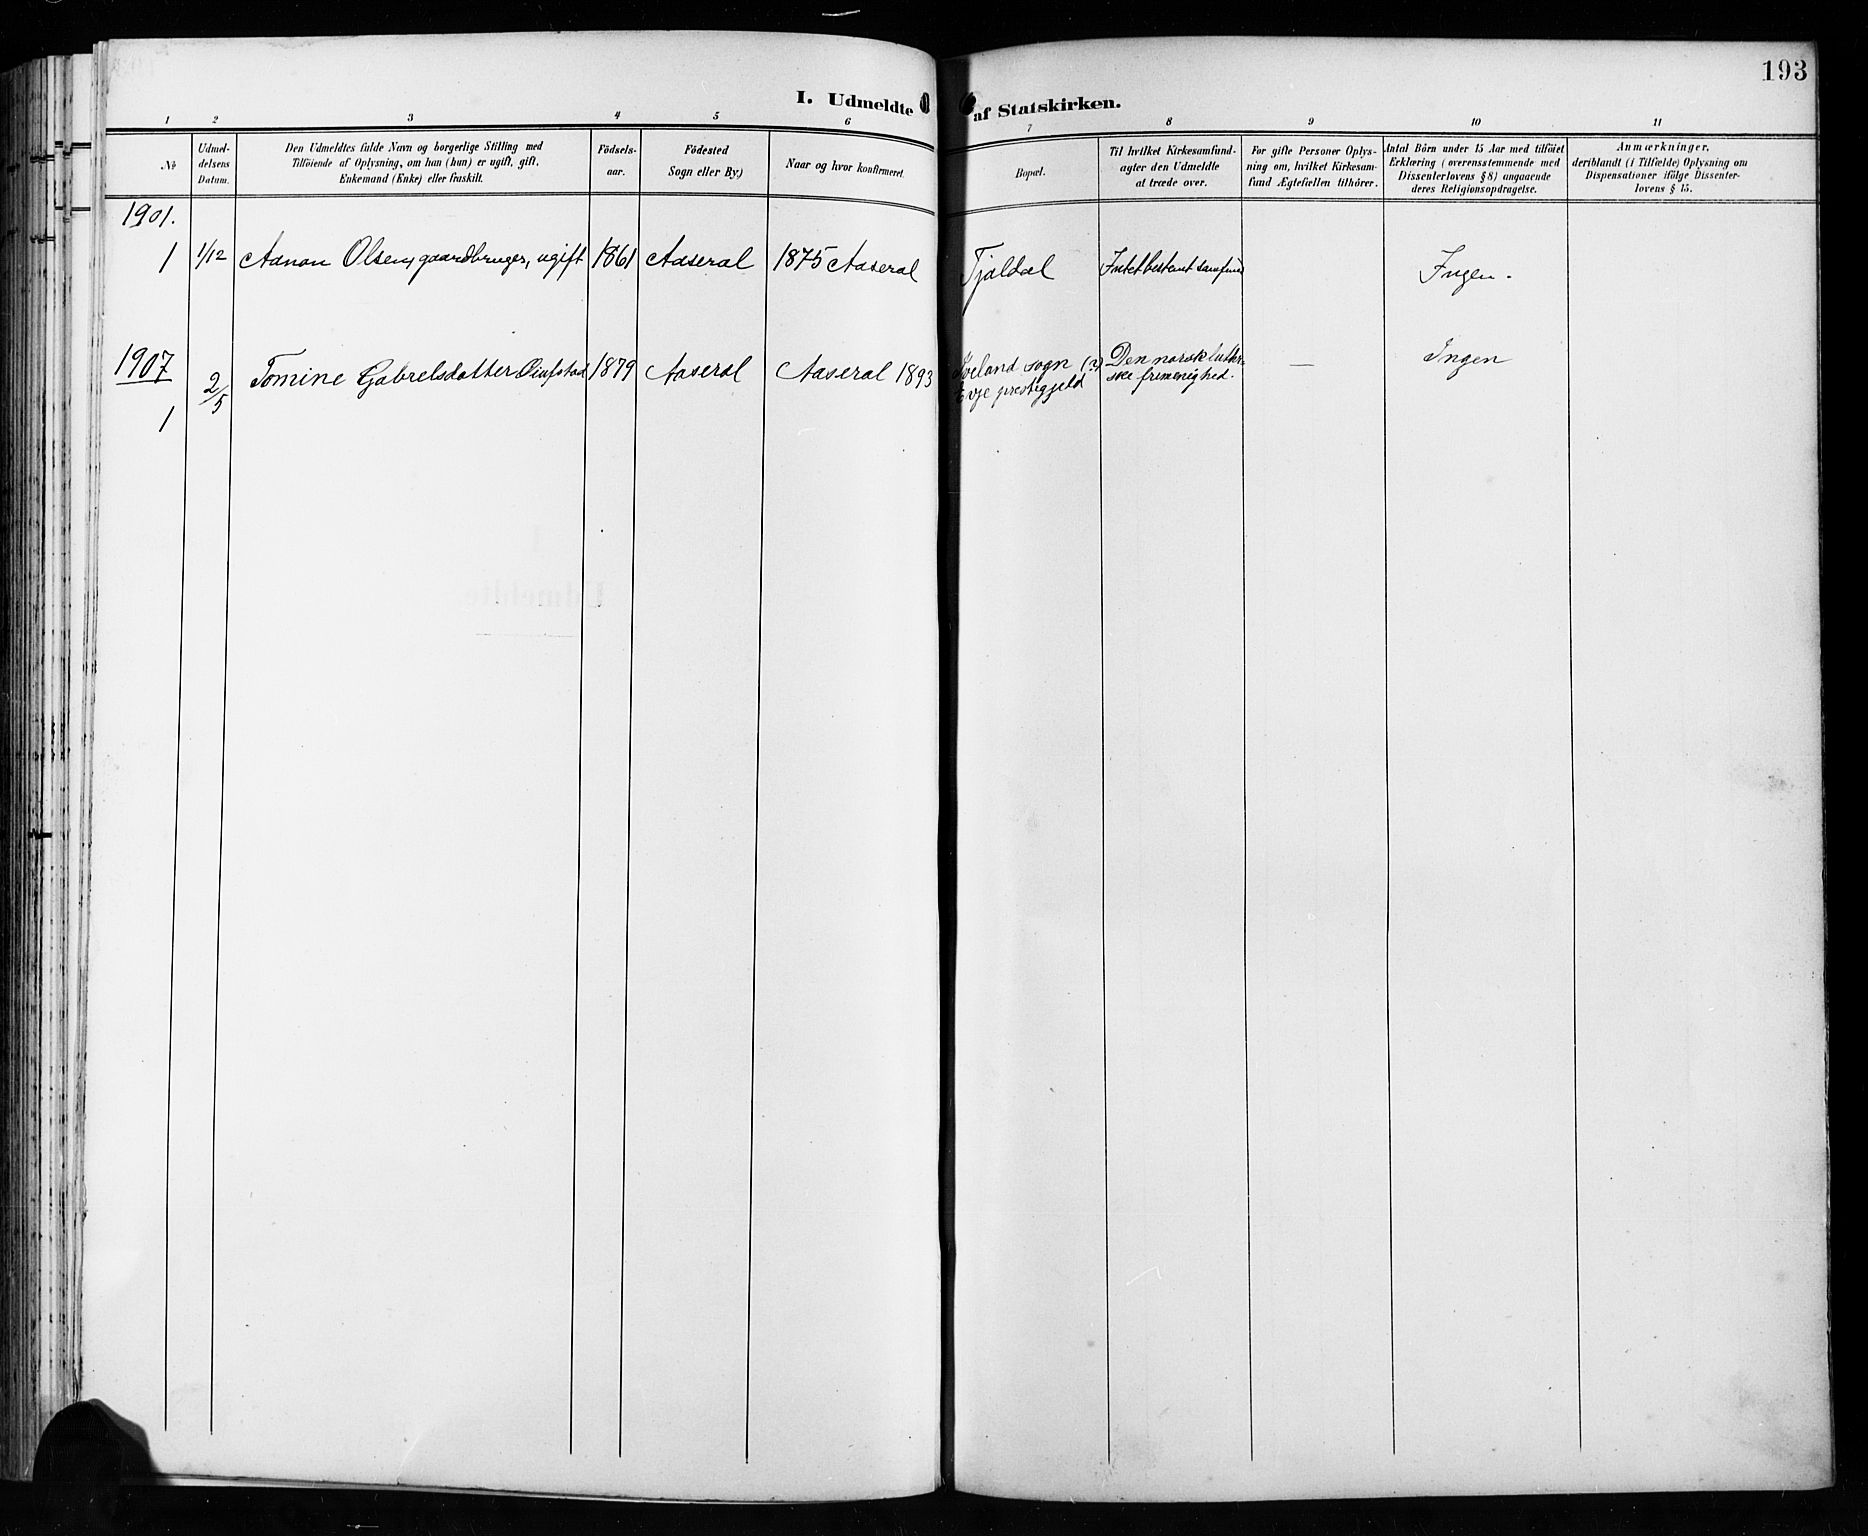 193
I. Udmeldte af Statskirken.
1 2 3 4 5 6 7 8 9 10 11
No
Udmel-
delsens
Datum.
Den Udmeldtes fulde Navn og borgerlige Stilling med
Tilföiende af Oplysning, om han (hun) er ugift, gift,
Enkemand (Enke) eller fraskilt.
Födsels-
aar.
Födested
Sogn eller By.)
Naar og hvor konfirmeret.
Bopæl.
Til hvilket Kirkesamfund-
agter den Udmeldte
at træde over.
For gifte Personer Oplys-
ning om, hvilket Kirkesam-
fund Ægtefællen tilhörer.
Antal Börn under 15 Aar med tilföiet
Erklæring (overensstemmende med
Dissenterlovens § 8) angaaende
deres Religionsopdragelse.
Anmærkninger,
deriblandt (i Tilfælde) Oplysning om
Dispensationer ifölge Dissenter-
lovens § 15.
1901.
1 1/12 Aanon Olsen, gaardbruger, ugift 1861 Aaseral 1875 Aaseral Tjaldal Intet bestemt samfund Ingen.
1907
1 2/5 Tomine Gabrelsdatter 1879 Aaseral Aaseral 1893
Iveland sogn (?)
Evje prestegjeld
Den norsk luther-
ske frimenighed.
—
Ingen